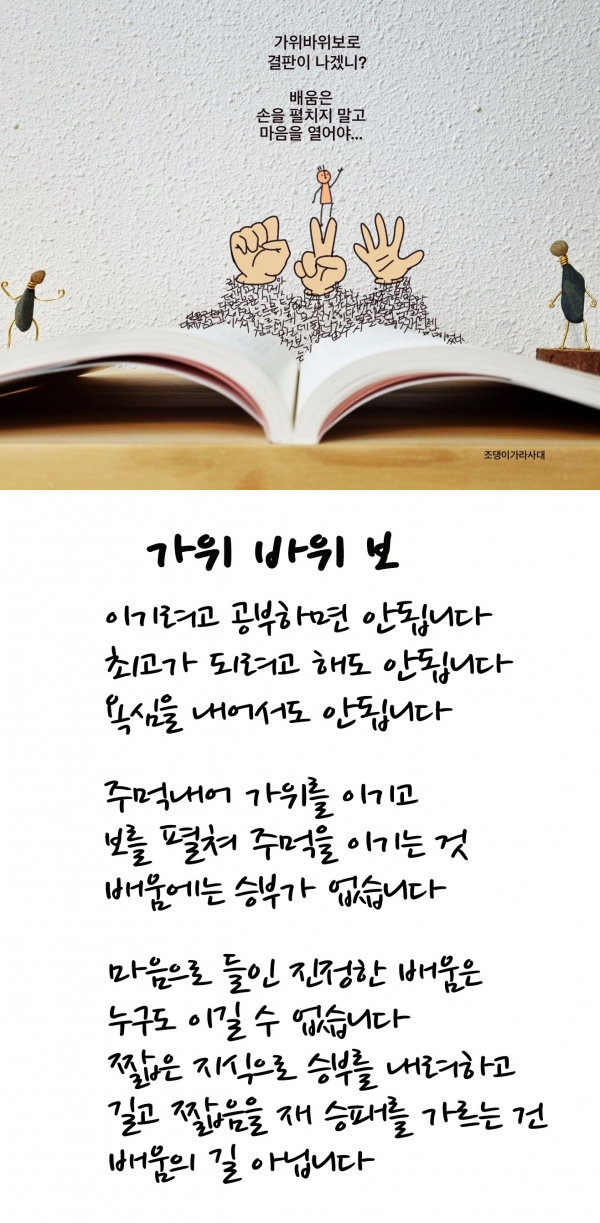 가위바위보로
결판이 나겠니?
배움은
손을 펼치지 말고
마음을 열어야...
조댕이가라사대
가위 바위 보
이기려고 공부하면 안됩니다
최고가 되려고 해도 안됩니다
욕심을 내어서도 안됩니다
주먹내어 가위를 이기고
보를 펼쳐 주먹을 이기는 것
배움에는 승부가 없습니다
마음으로 들인 진정한 배움은
누구도 이길 수 없습니다
짧은 지식으로 승부를 내려하고
길고 짧음을 재 승패를 가르는 건
배움의 길 아닙니다